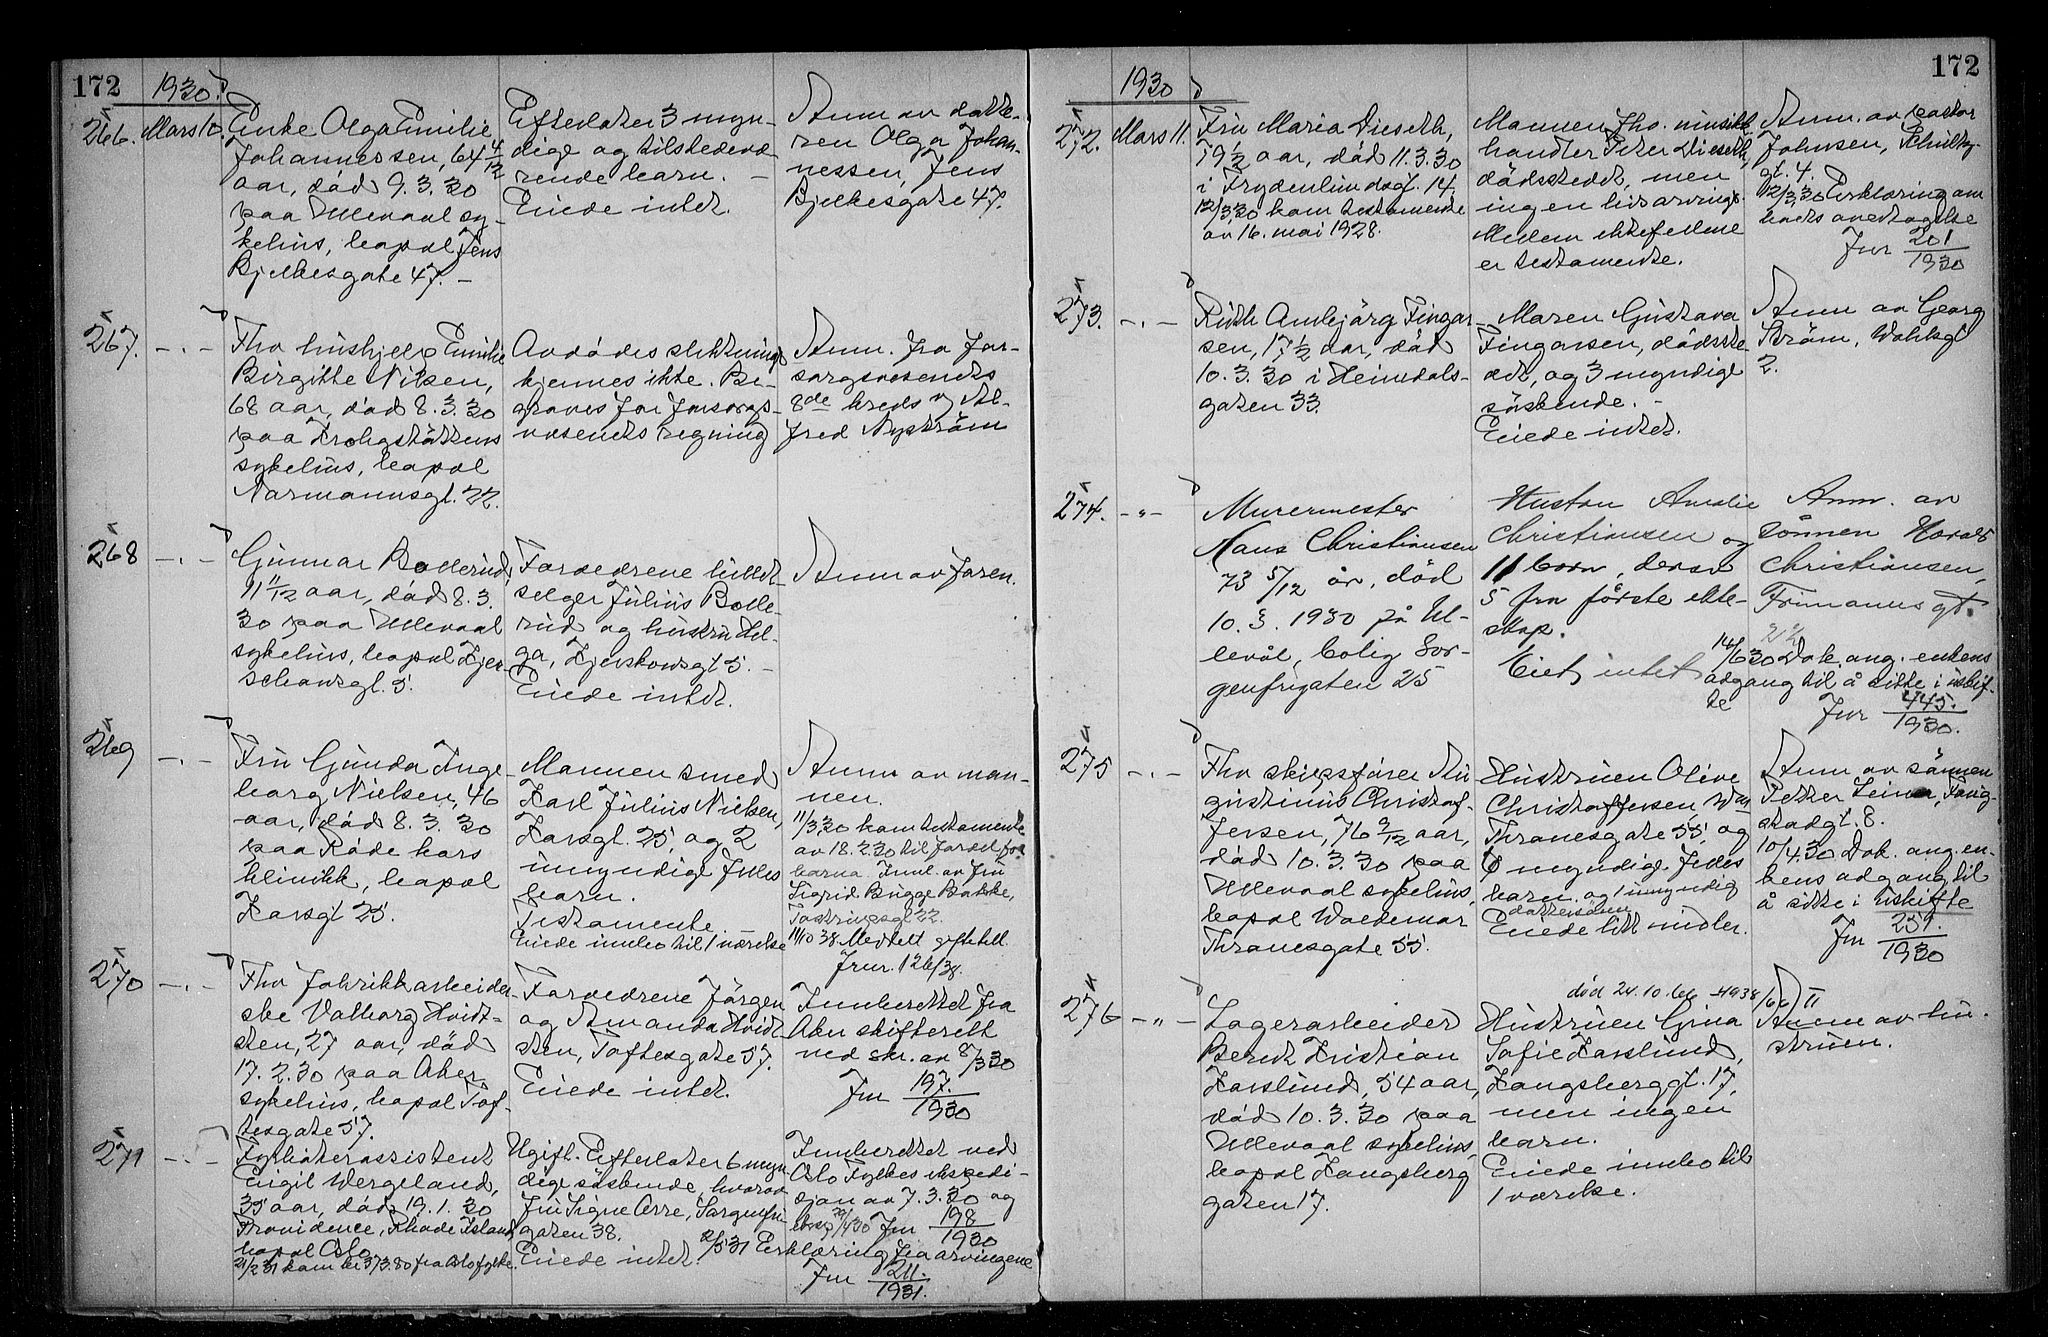 172
1930.
266. Mars 10.
Enke Olga Emilie
Johannessen, 64 4/12
aar, død 9.3.30
paa Ullevaal sy-
kehus, bopæl Jens
Bjelkesgate 47. -
Efterlater 3 myn-
dige og tilstedevæ
rende barn. -
Eiede intet.
Anm. av datte-
ren Olga Johan-
nessen, Jens
Bjelkesgate 47.
267. -.-
Fhv hushjelp Emilie
Birgitte Nilsen,
68 aar, død 8.3.30
paa Krohgstøttens
sykehus, bopæl
Normannsgt. 22.
Avdødes slektninge
kjennes ikke. Be-
graves for forsorgs-
væsenets regning
Anm. fra for-
sorgsvæsenets
8de kreds v/ Al-
fred Nystrøm
268 -.-
Gunnar Bollerud,
11 11/12 aar, død 8.3.
30 paa Ullevaal
sykehus, bopæl Kjer-
schowsgt. 5.
Forældrene billet-
selger Julius Bolle-
rud og hustru Hel-
ga, Kjerskowsgt 5. -
Eiede intet.
Anm av faren.
269 -.-
Fru Gunda Inge-
borg Nielsen, 46
aar, død 8.3.30
paa Røde kors
klinikk, bopæl
Korsgt 25.
Mannen smed
Karl Julius Nielsen,
Korsgt. 25, og 2
umyndige fælles
barn.
Testamente.
Eiede innbo til 1 værelse
Anm av man-
nen.
11/3.30 kom testamente
av 18.2.30 til fordel for
barna. Innl. av fru
Sigrid Brügge Bakke,
11/10 38. Meddelt gifteatt.
Jnr. 126/38.
270 -.-
Fhv fabrikkarbeider-
ske Valborg Hvidt-
sten, 27 aar, død
17.2.30 paa Aker
sykehus, bopæl Tof-
tesgate 57.
Forældrene Jørgen
og Amanda Hvidt
sten, Toftesgate 57.
Eiede intet.
Innberettet fra
Aker skifterett
ved skr. av 8/3 30
Jnr 197./1930
271 -.-
Eigil Wergeland,
35 aar, død 19.1.30
Providence, Rhode Island,
bopæl Oslo
21/2 31 kom fra Oslo fylke.
Ugift. Efterlater 6 myn
dige søskende, hvorav
fru Signe Orre, Sorgenfri
gaten 38.
Eiede intet.
Innberettet ved
Oslo Fylkes ekspedi-
sjon av 7.3.30 og
Jnr 198/1930
2/5 31 Erklæring fra arvingene
Jnr 211./1931.
172
1930
272. Mars 11.
Fru Maria Dieseth,
79 1/2 aar, død 11.3.30
i Frydenlundsgt. 14.
12/3.30 kom testamente
av 16. mai 1928.
Mannen fhv. musikk
handler Peter Dieseth,
dødsstedet, men
ingen livsarvinge.
Mellem ektefellene
er testamente.
Anm. av pastor
Johnsen, Schultz
gt. 4.
12/3.30 Erklæring om
boets overtagelse
Jnr 201/1930
273. -.-
Ruth Ambjørg Fingar
sen, 17 1/2 aar, død
10.3.30 i Heimdals-
gaten 33.
Maren Gustava
Fingarsen, dødsste-
det, og 3 myndige
søskende. -
Eiede intet.
Anm av Georg
Strøm, Wahlsgt
2.
274. -"-
Murermester
Hans Christiansen
73 5/12 år, død
10.3.1930 på Ul-
levål, bolig Sor-
genfrigaten 25
Hustru Amalie
Christiansen og
11 barn, derav
5 fra første ekte-
skap.
Eiet intet
Anm. av
sønnen Harald
Christiansen,
Frimanns gt.
21/2
14/6 30 Dok. ang. enkens
adgang til å sitte i uskif-
te
Jnr 445./1930.
275 -.-
Fhv skipsfører Au
gustinus Christof-
fersen, 76 9/12 aar,
død 10.3.30 paa
Ullevaal sykehus,
bopæl Waldemar
Thranesgate 55.
Hustruen Oline
Christoffersen Wm
Thranesgate 55, og
6 myndige fælles
barn og 1 umyndig
dattersønn
Eiede litt midler.
Anm av sønnen
Petter Leiner, Fag-
stadgt. 8.
10/4.30 Dok. ang. en-
kens adgang til
å sitte i uskifte
Jnr 251./1930
276 -"-
Lagerarbeider
Bernt Kristian
Karslund, 54 aar,
død 10.3.30 paa
Ullevaal sykehus,
bopæl Langsberg
gaten 17.
død 24.10.66 - 1938/66 II
Hustruen Gina
Sofie Karslund,
Langsberggt. 17,
men ingen
barn.
Eiede innbo til
1 værelse.
Anm av hu-
struen.